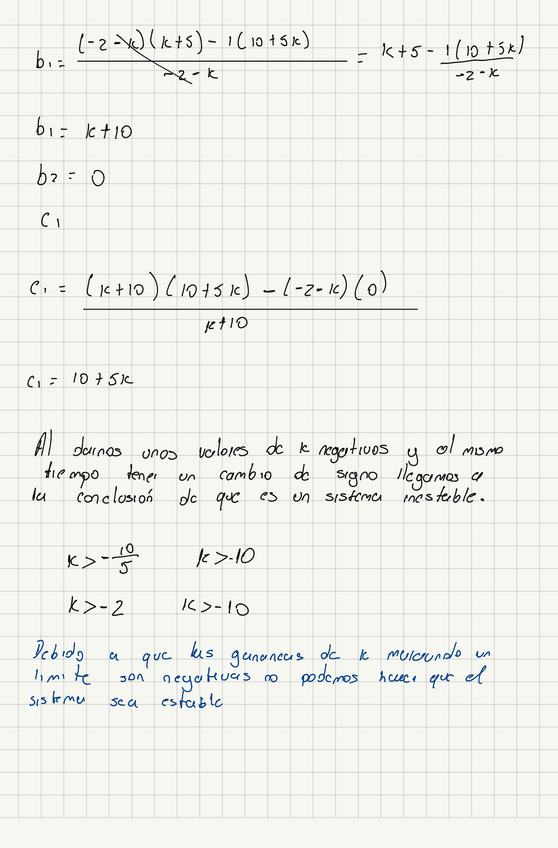 b₁ = (-2 - k)(k+5) - 1(10+5k) / -2 - k = k+5 - 1(10+5k) / -2 - k
b₁ = k+10
b₂ = 0
C₁
C₁ = (k+10)(10+5k) - (-2-k)(0) / k+10
C₁ = 10+5k
Al darnos unos valores de k negativos y al mismo
tiempo tener un cambio de signo llegamos a
la conclusión de que es un sistema inestable.
k > -10/5 k > -10
k > -2 k > -10
Debido a que las ganancias de k marcando un
limite son negativas no podemos hacer que el
sistema sea estable